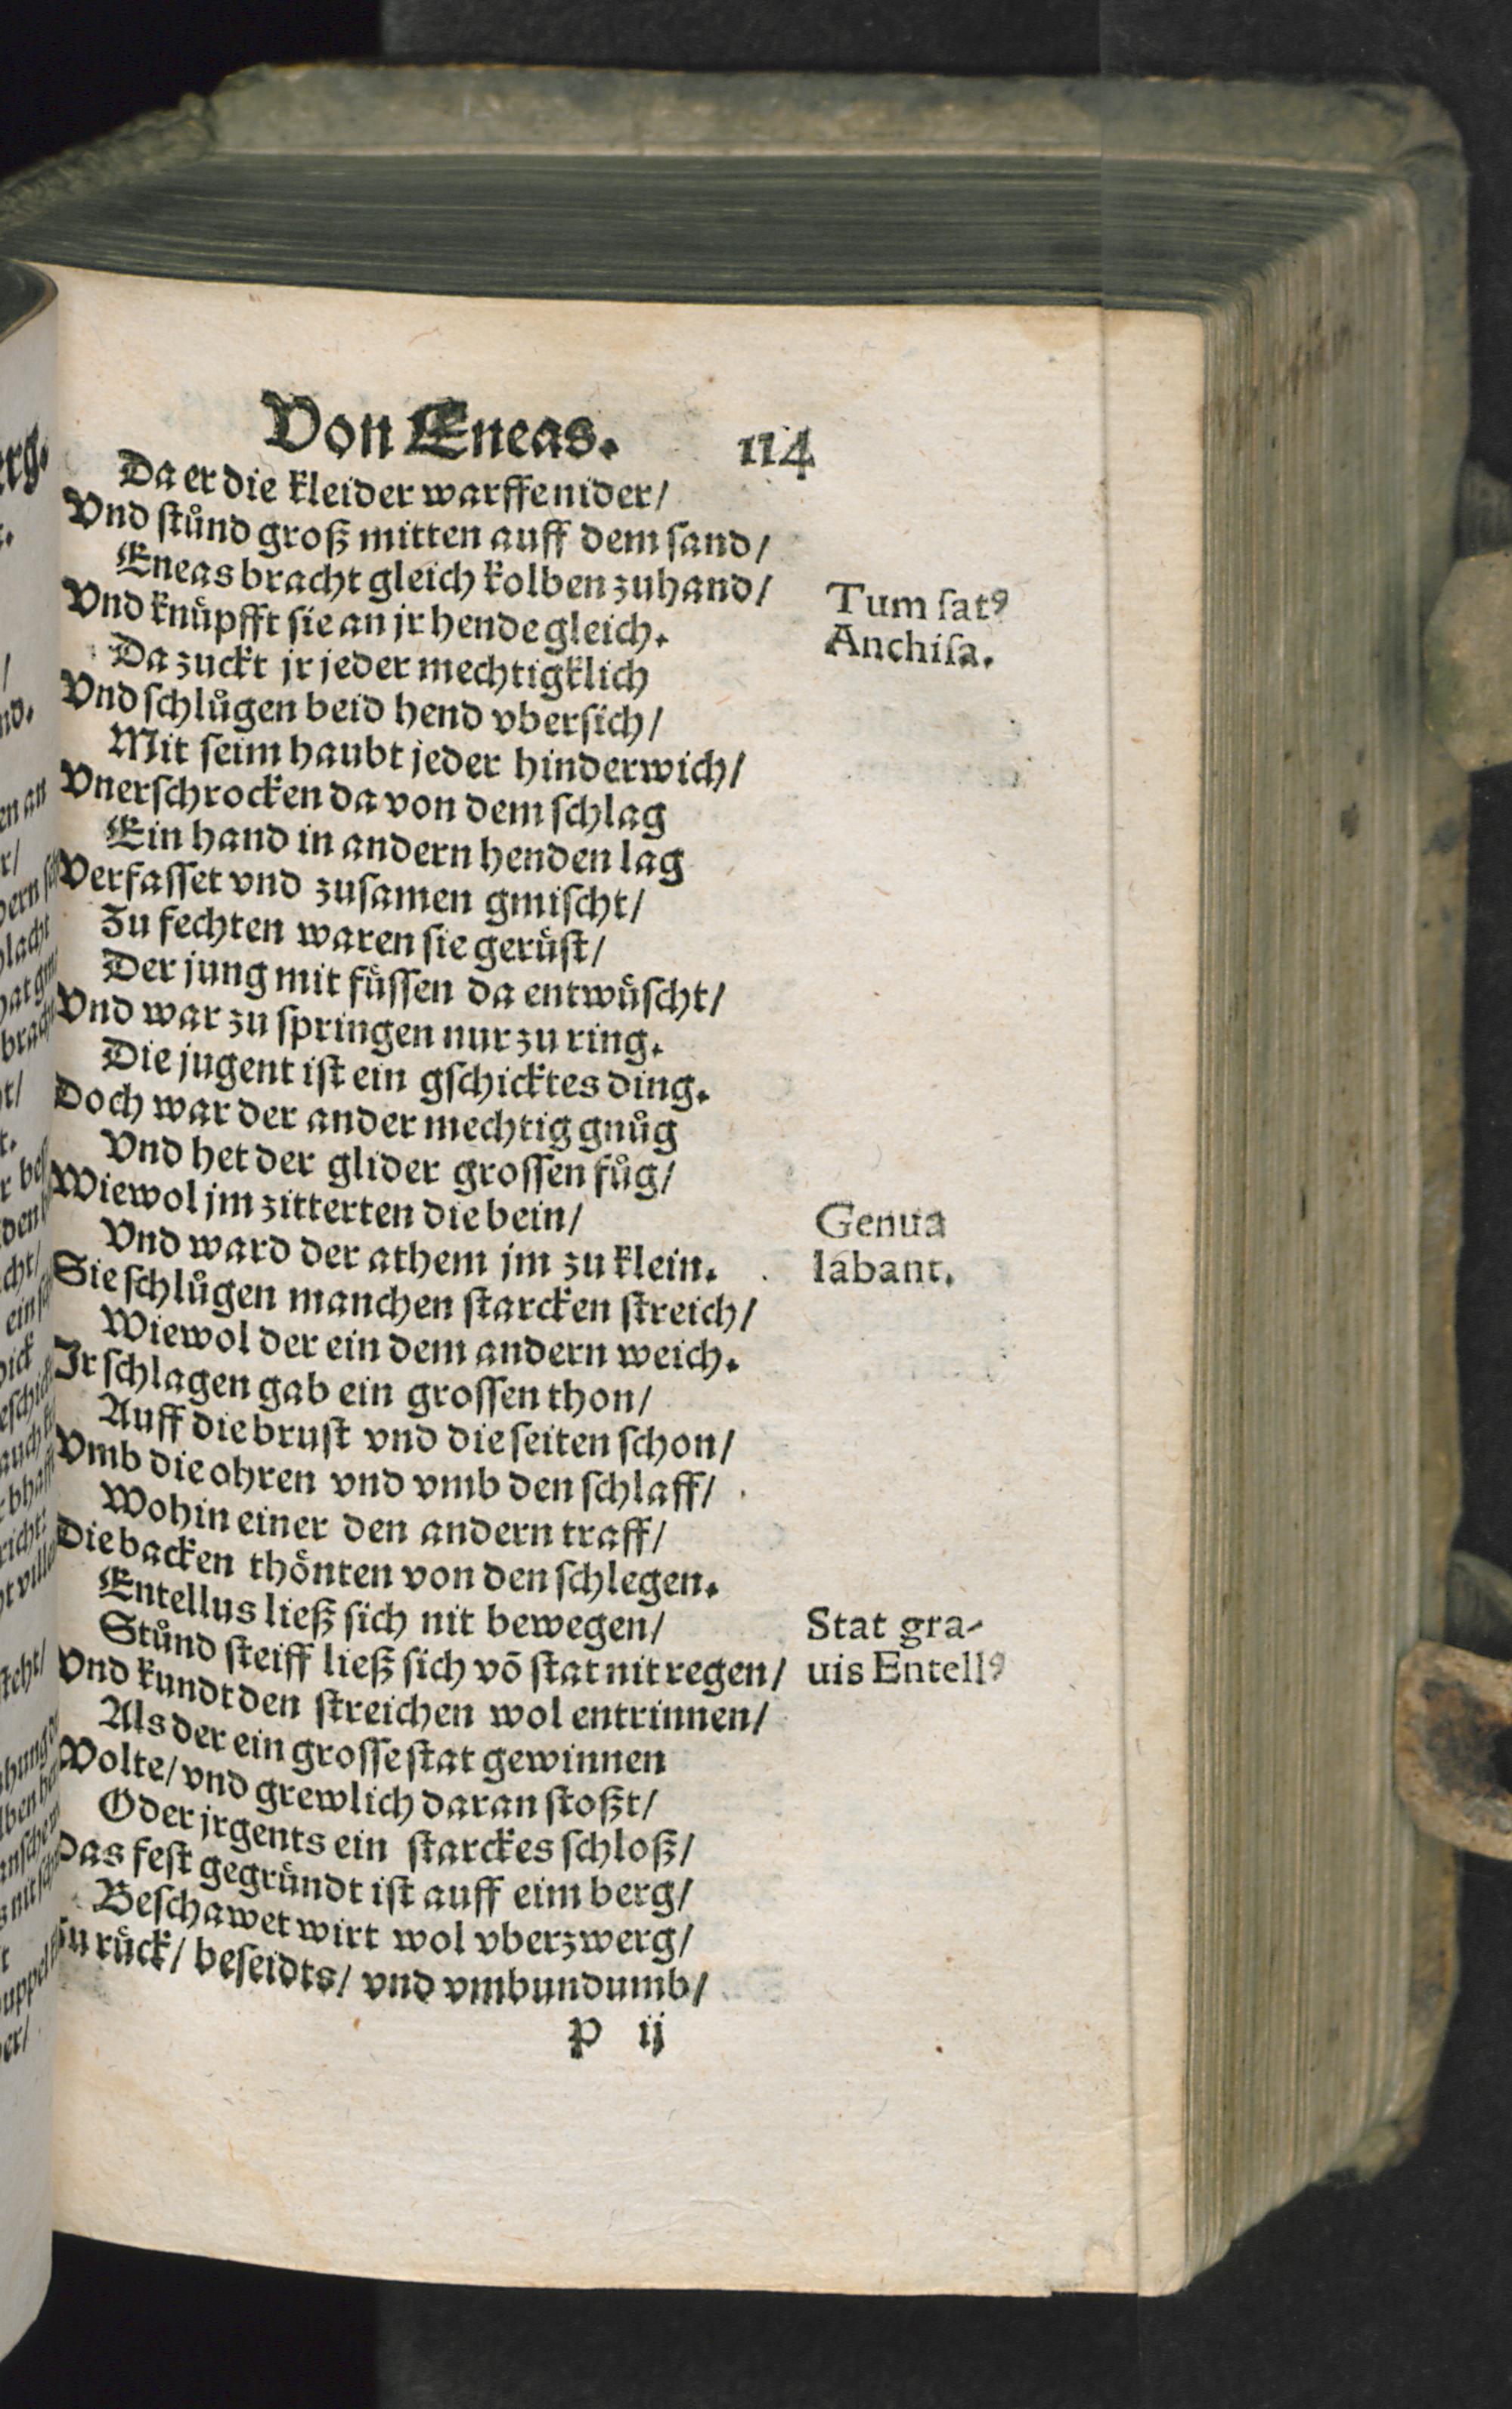 Von Eneas. 114
Da er die kleider warffe nider/
Vnd stůnd groß mitten auff dem sand/
Eneas bracht gleich kolben zuhand/
Vnd knüpfft sie an jr hende gleich.
Da zuckt jr jeder mechtigklich
Vnd schlůgen beid hend vbersich/
Mit seim haubt jeder hinderwich/
Vnerschrocken da von dem schlag
Ein hand in andern henden lag
Verfasset vnd zusamen gmischt/
Zu fechten waren sie gerüst/
Der jung mit füssen da entwüscht/
Vnd war zu springen nur zu ring.
Die jugent ist ein gschicktes ding.
Doch war der ander mechtig gnůg
Vnd het der glider grossen fůg/
Wiewol jm zitterten die bein/
Vnd ward der athem jm zu klein.
Sie schlůgen manchen starcken streich/
Wiewol der ein dem andern weich.
Ir schlagen gab ein grossen thon/
Auff die brust vnd die seiten schon/
Vmb die ohren vnd vmb den schlaff/
Wohin einer den andern traff/
Die backen thönten von den schlegen.
Entellus ließ sich nit bewegen/
Stůnd steiff ließ sich võ stat nit regen/
Vnd kundt den streichen wol entrinnen/
Als der ein grosse stat gewinnen
Wolte/ vnd grewlich daran stoßt/
Oder jrgents ein starckes schloß/
Das fest gegründt ist auff eim berg/
Beschawet wirt wol vberzwerg/
Zu rück/ beseidts/ vnd vmbundumb/
p ij
Tum satꝰ
Anchisa.
Genua
labant.
Stat gra-
uis Entellꝰ